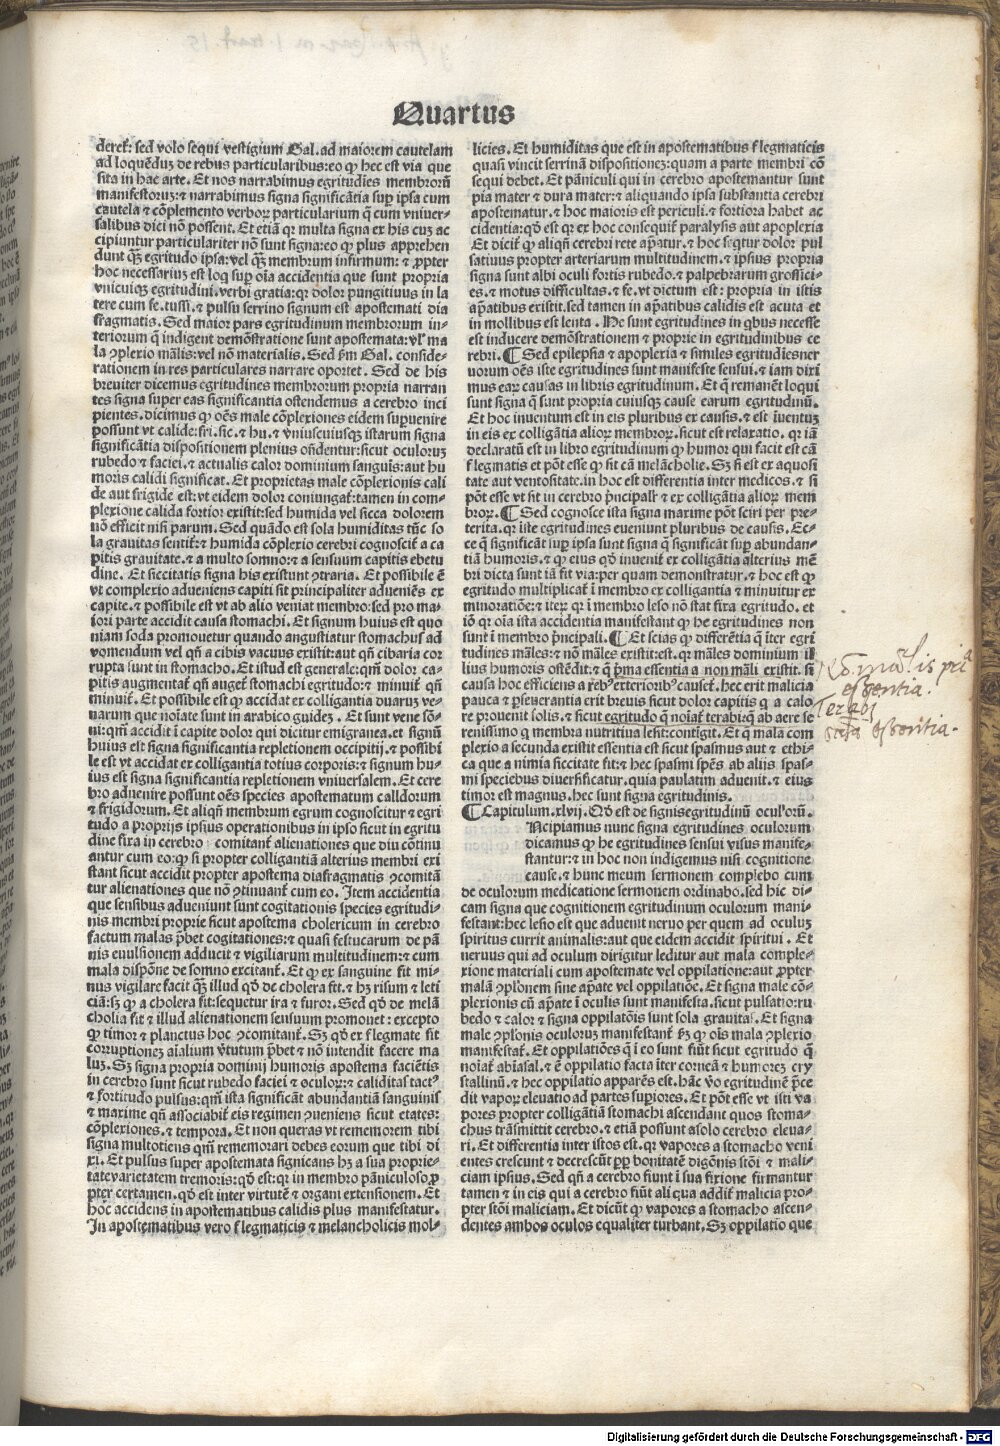 Quartus
dereƭ: sed volo sequi vestigium Gal. ad maiorem cautelam
ad loquēduȝ de rebus particularibus:eo ꝙ hec est via que
sita in hac arte. Et nos narrabimus egritudīes membrorū
manifestoruȝ:⁊ narrabimus signa significātia suꝑ ipsa cum
cautela ⁊ cōplemento verboꝝ particularium q̄ cum vniuer-
salibus dici nō possent. Et etiā qꝛ multa signa ex his cuȝ ac
cipiuntur particulariter nō sunt signa:eo ꝙ plus apprehen
dunt q̄ȝ egritudo ipsa:vel q̄ȝ membrum infirmum: ⁊ ꝓpter
hoc necessariuȝ est loq̄ suꝑ oīa accidentia que sunt propria
vnicuiqȝ egritudini. verbi gratia:qꝛ dolor pungitiuus in la
tere cum fe.tussi.⁊ pulsu serrino signum est apostemati dia
fragmatis. Sed maior pars egritudinum membrorum in-
teriorum q̄ indigent demōstratione sunt apostemata: vl̓ ma
la ꝯplexio māl̓is:vel nō materialis. Sed ẜm Gal. conside-
rationem in res particulares narrare oportet. Sed de his
breuiter dicemus egritudines membrorum propria narran
tes signa super eas significantia ostendemus a cerebro inci
pientes. dicimus ꝙ oēs male cōplexiones eidem suꝑuenire
possunt vt calide:fri.sic.⁊ hu. ⁊ vniuscuiusqȝ istarum signa
significātia dispositionem plenius oñdentur:sicut oculoruȝ
rubedo ⁊ faciei.⁊ actualis calor dominium sanguīs:aut hu
moris calidi significat. Et proprietas male cōplexionis cali
de aut frigide est: vt eidem dolor coniungaƭ:tamen in com-
plexione calida fortior existit:sed humida vel sicca dolorem
nō efficit nisi parum. Sed quādo est sola humiditas tūc so
la grauitas sentiƭ:⁊ humida cōplexio cerebri cognosciƭ a ca
pitis grauitate.⁊ a multo somno:⁊ a sensuum capitis ebetu
dine. Et siccitatis signa his existunt ꝯtraria. Et possibile ē
vt complexio adueniens capiti sit principaliter adueniēs ex
capite.⁊ possibile est vt ab alio veniat membro:sed pro ma-
iori parte accidit causa stomachi. Et signum huius est quo
niam soda promouetur quando angustiatur stomachus ad
vomendum vel qn̄ a cibis vacuus existit:aut qn̄ cibaria cor
rupta sunt in stomacho. Et istud est generale:qm̄ dolor ca-
pitis augmentaƭ qn̄ augeƭ stomachi egritudo:⁊ minuiƭ qn̄
minuiƭ. Et possibile est ꝙ accidat ex colligantia duaruȝ ve-
narum que noīate sunt in arabico guideȝ. Et sunt vene sō-
ni:qm̄ accidit ī capite dolor qui dicitur emigranea.et signū
huius est signa significantia repletionem occipitij.⁊ possibi
le est vt accidat ex colligantia totius corporis:⁊ signum hu-
ius est signa significantia repletionem vniuersalem. Et cere
bro aduenire possunt oēs species apostematum calidorum
⁊ frigidorum. Et aliqn̄ membrum egrum cognoscitur ⁊ egri
tudo a proprijs ipsius operationibus in ipso sicut in egritu
dine fixa in cerebro comitanƭ alienationes que diu cōtinu
antur cum eo:ꝙ si propter colligantiā alterius membri exi
stant sicut accidit propter apostema diafragmatis ꝯcomitā
tur alienationes que nō ꝯtinuanƭ cum eo. Item accidentia
que sensibus adueniunt sunt cogitationis species egritudi-
nis membri proprie sicut apostema cholericum in cerebro
factum malas p̄bet cogitationes:⁊ quasi festucarum de pā
nis euulsionem adducit ⁊ vigiliarum multitudinem:⁊ cum
mala dispōne de somno excitanƭ. Et ꝙ ex sanguine fit mi-
nus vigilare facit q̄ȝ illud qd̓ de cholera fit.⁊ hȝ risum ⁊ leti
ciā:sȝ ꝙ a cholera fit:sequetur ira ⁊ furor. Sed qd̓ de melā
cholia fit ⁊ illud alienationem sensuum promouet: excepto
ꝙ timor ⁊ planctus hoc ꝯcomitanƭ. Sȝ qd̓ ex flegmate fit
corruptioneȝ aīalium v̓tutum p̄bet ⁊ nō intendit facere ma
luȝ. Sȝ signa propria dominij humoris apostema faciētis
in cerebro sunt sicut rubedo faciei ⁊ oculoꝝ:⁊ caliditas tactꝰ
⁊ fortitudo pulsus:qm̄ ista significāt abundantiā sanguinis
⁊ maxime qn̄ associabiƭ eis regimen ꝯueniens sicut etates:
cōplexiones.⁊ tempora. Et non queras vt rememorem tibi
signa multotiens qm̄ rememorari debes eorum que tibi di
xi. Et pulsus super apostemata significans hȝ a sua proprie-
tate varietatem tremoris:qd̓ est:qꝛ in membro pāniculoso:ꝓ
pter certamen.qd̓ est inter virtutē ⁊ organi extensionem. Et
hoc accidens in apostematibus calidis plus manifestatur.
In apostematibus vero flegmaticis ⁊ melancholicis mol-
licies. Et humiditas que est in apostematibus flegmaticis
quasi vincit serrinā dispositioneȝ:quam a parte membri cō
sequi debet. Et pāniculi qui in cerebro apostemantur sunt
pia mater ⁊ dura mater:⁊ aliquando ipsa substantia cerebri
apostematur.⁊ hoc maioris est periculi.⁊ fortiora habet ac
cidentia:qd̓ est qꝛ ex hoc consequiƭ paralysis aut apoplexia
Et diciƭ ꝙ aliqn̄ cerebri rete ap̄atur.⁊ hoc seq̄tur dolor pul
satiuus propter arteriarum multitudinem.⁊ ipsius propria
signa sunt albi oculi fortis rubedo.⁊ palpebrarum grossici-
es.⁊ motus difficultas.⁊ fe.vt dictum est: propria in istis
ap̄atibus existit.sed tamen in ap̄atibus calidis est acuta et
in mollibus est lenta. He sunt egritudines in qͥbus necesse
est inducere demōstrationem ⁊ proprie in egritudinibus ce
rebri. ¶ Sed epilepsia ⁊ apoplexia ⁊ similes egritudīes ner
uorum oēs iste egritudines sunt manifeste sensui.⁊ iam dixi
mus eaꝝ causas in libris egritudinum. Et q̄ remanēt loqui
sunt signa q̄ sunt propria cuiusqȝ cause earum egritudinū.
Et hoc inuentum est in eis pluribus ex causis.⁊ est iuentuȝ
in eis ex colligātia alioꝝ membroꝝ.sicut est relaxatio. qꝛ iā
declaratū est in libro egritudinum ꝙ humor qui facit est cā
flegmatis et pōt esse ꝙ sit cā melācholie. Sȝ si est ex aquosi
tate aut ventositate.in hoc est differentia inter medicos.⁊ si
pōt esse vt sit in cerebro p̄ncipalr̓ ⁊ ex colligātia alioꝝ mem
broꝝ. ¶ Sed cognosce ista signa maxime pōt sciri per pre-
terita.qꝛ iste egritudines eueniunt pluribus de causis. Ec-
ce q̄ significāt suꝑ ipsa sunt signa q̄ significāt suꝑ abundan-
tiā humoris.⁊ ꝙ eius qd̓ inueniƭ ex colligātia alterius mē
bri dicta sunt iā fit via:per quam demonstratur.⁊ hoc est ꝙ
egritudo multiplicaƭ ī membro ex colligantia ⁊ minuitur ex
minoratiōe:⁊ iteꝝ qꝛ ī membro leso nō stat fixa egritudo. et
iō qꝛ oīa ista accidentia manifestant ꝙ he egritudines non
sunt ī membro p̄ncipali. ¶ Et scias ꝙ differētia q̄ īter egri
tudines māles:⁊ nō māles existit:est.qꝛ māles dominium il
lius humoris ostēdit:⁊ q̄ p̄ma essentia a non māli existit.si
causa hoc efficiens a rebꝰ exterioribꝰ causeƭ.hec erit malicia
pauca ⁊ ꝑseuerantia erit breuis sicut dolor capitis q̄ a calo
re prouenit solis.⁊ sicut egritudo q̄ noīaƭ terabiq̄ ab aere se
renissimo q̄ membra nutritiua lesit:contigit. Et q̄ mala com
plexio a secunda existit essentia est sicut spasmus aut ⁊ ethi-
ca que a nimia siccitate fit:⁊ hec spasmi sp̄es ab alijs spas-
mi speciebus diuersificatur.quia paulatim aduenit.⁊ eius
timor est magnus.hec sunt signa egritudinis.
¶ Capitulum.xlvij. Qd̓ est de signis egritudinū oculoꝝ.
Ncipiamus nunc signa egritudines oculorum
dicamus ꝙ he egritudines sensui visus manife-
stantur:⁊ in hoc non indigemus nisi cognitione
cause.⁊ hunc meum sermonem complebo cum
de oculorum medicatione sermonem ordinabo.sed hic di-
cam signa que cognitionem egritudinum oculorum mani-
festant:hec lesio est que aduenit neruo per quem ad oculuȝ
spiritus currit animalis:aut que eidem accidit spiritui. Et
neruus qui ad oculum dirigitur leditur aut mala comple-
xione materiali cum apostemate vel oppilatione:aut ꝓpter
malā ꝯplōnem sine ap̄ate vel oppilatiōe. Et signa male cō-
plexionis cū ap̄ate ī oculis sunt manifesta.sicut pulsatio:ru
bedo ⁊ calor ⁊ signa oppilatōis sunt sola grauitas. Et signa
male ꝯplōnis oculoruȝ manifestanƭ ẜȝ ꝙ oīs mala ꝯplexio
manifestaƭ. Et oppilatiōes q̄ ī eo sunt fiūt sicut egritudo q̄
noīaƭ abīasal.⁊ ē oppilatio facta īter corneā ⁊ humoreȝ cry
stallinū.⁊ hec oppilatio apparēs est.hāc v̓o egritudinē p̄ce
dit vapoꝝ eleuatio ad partes suꝑiores. Et pōt esse vt isti va
pores propter colligātiā stomachi ascendant quos stoma-
chus trāsmittit cerebro.⁊ etiā possunt a solo cerebro eleua-
ri. Et differentia inter istos est.qꝛ vapores a stomacho veni
entes crescunt ⁊ decrescūt ꝓp̄ bonitatē digōnis stōi ⁊ mali-
ciam ipsius. Sed qn̄ a cerebro fiunt ī sua fixione firmantur
tamen ⁊ in eis qui a cerebro fiūt aliqua addiƭ malicia pro-
pter stōi maliciam. Et dicūt ꝙ vapores a stomacho ascen-
dentes ambos oculos equaliter turbant. Sȝ oppilatio que
essentia.
essentia.
Digitalisierung gefördert durch die Deutsche Forschungsgemeinschaft - DFG